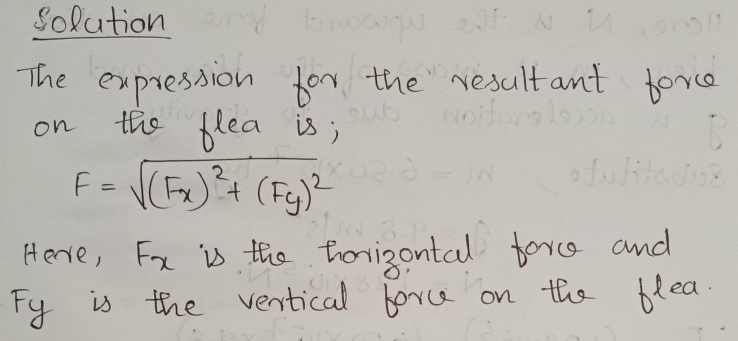 Solution
The expression for the resultant force
on the flea is;
F = √(Fx)² + (Fy)²
Here, Fx is the horizontal force and
Fy is the vertical force on the flea.